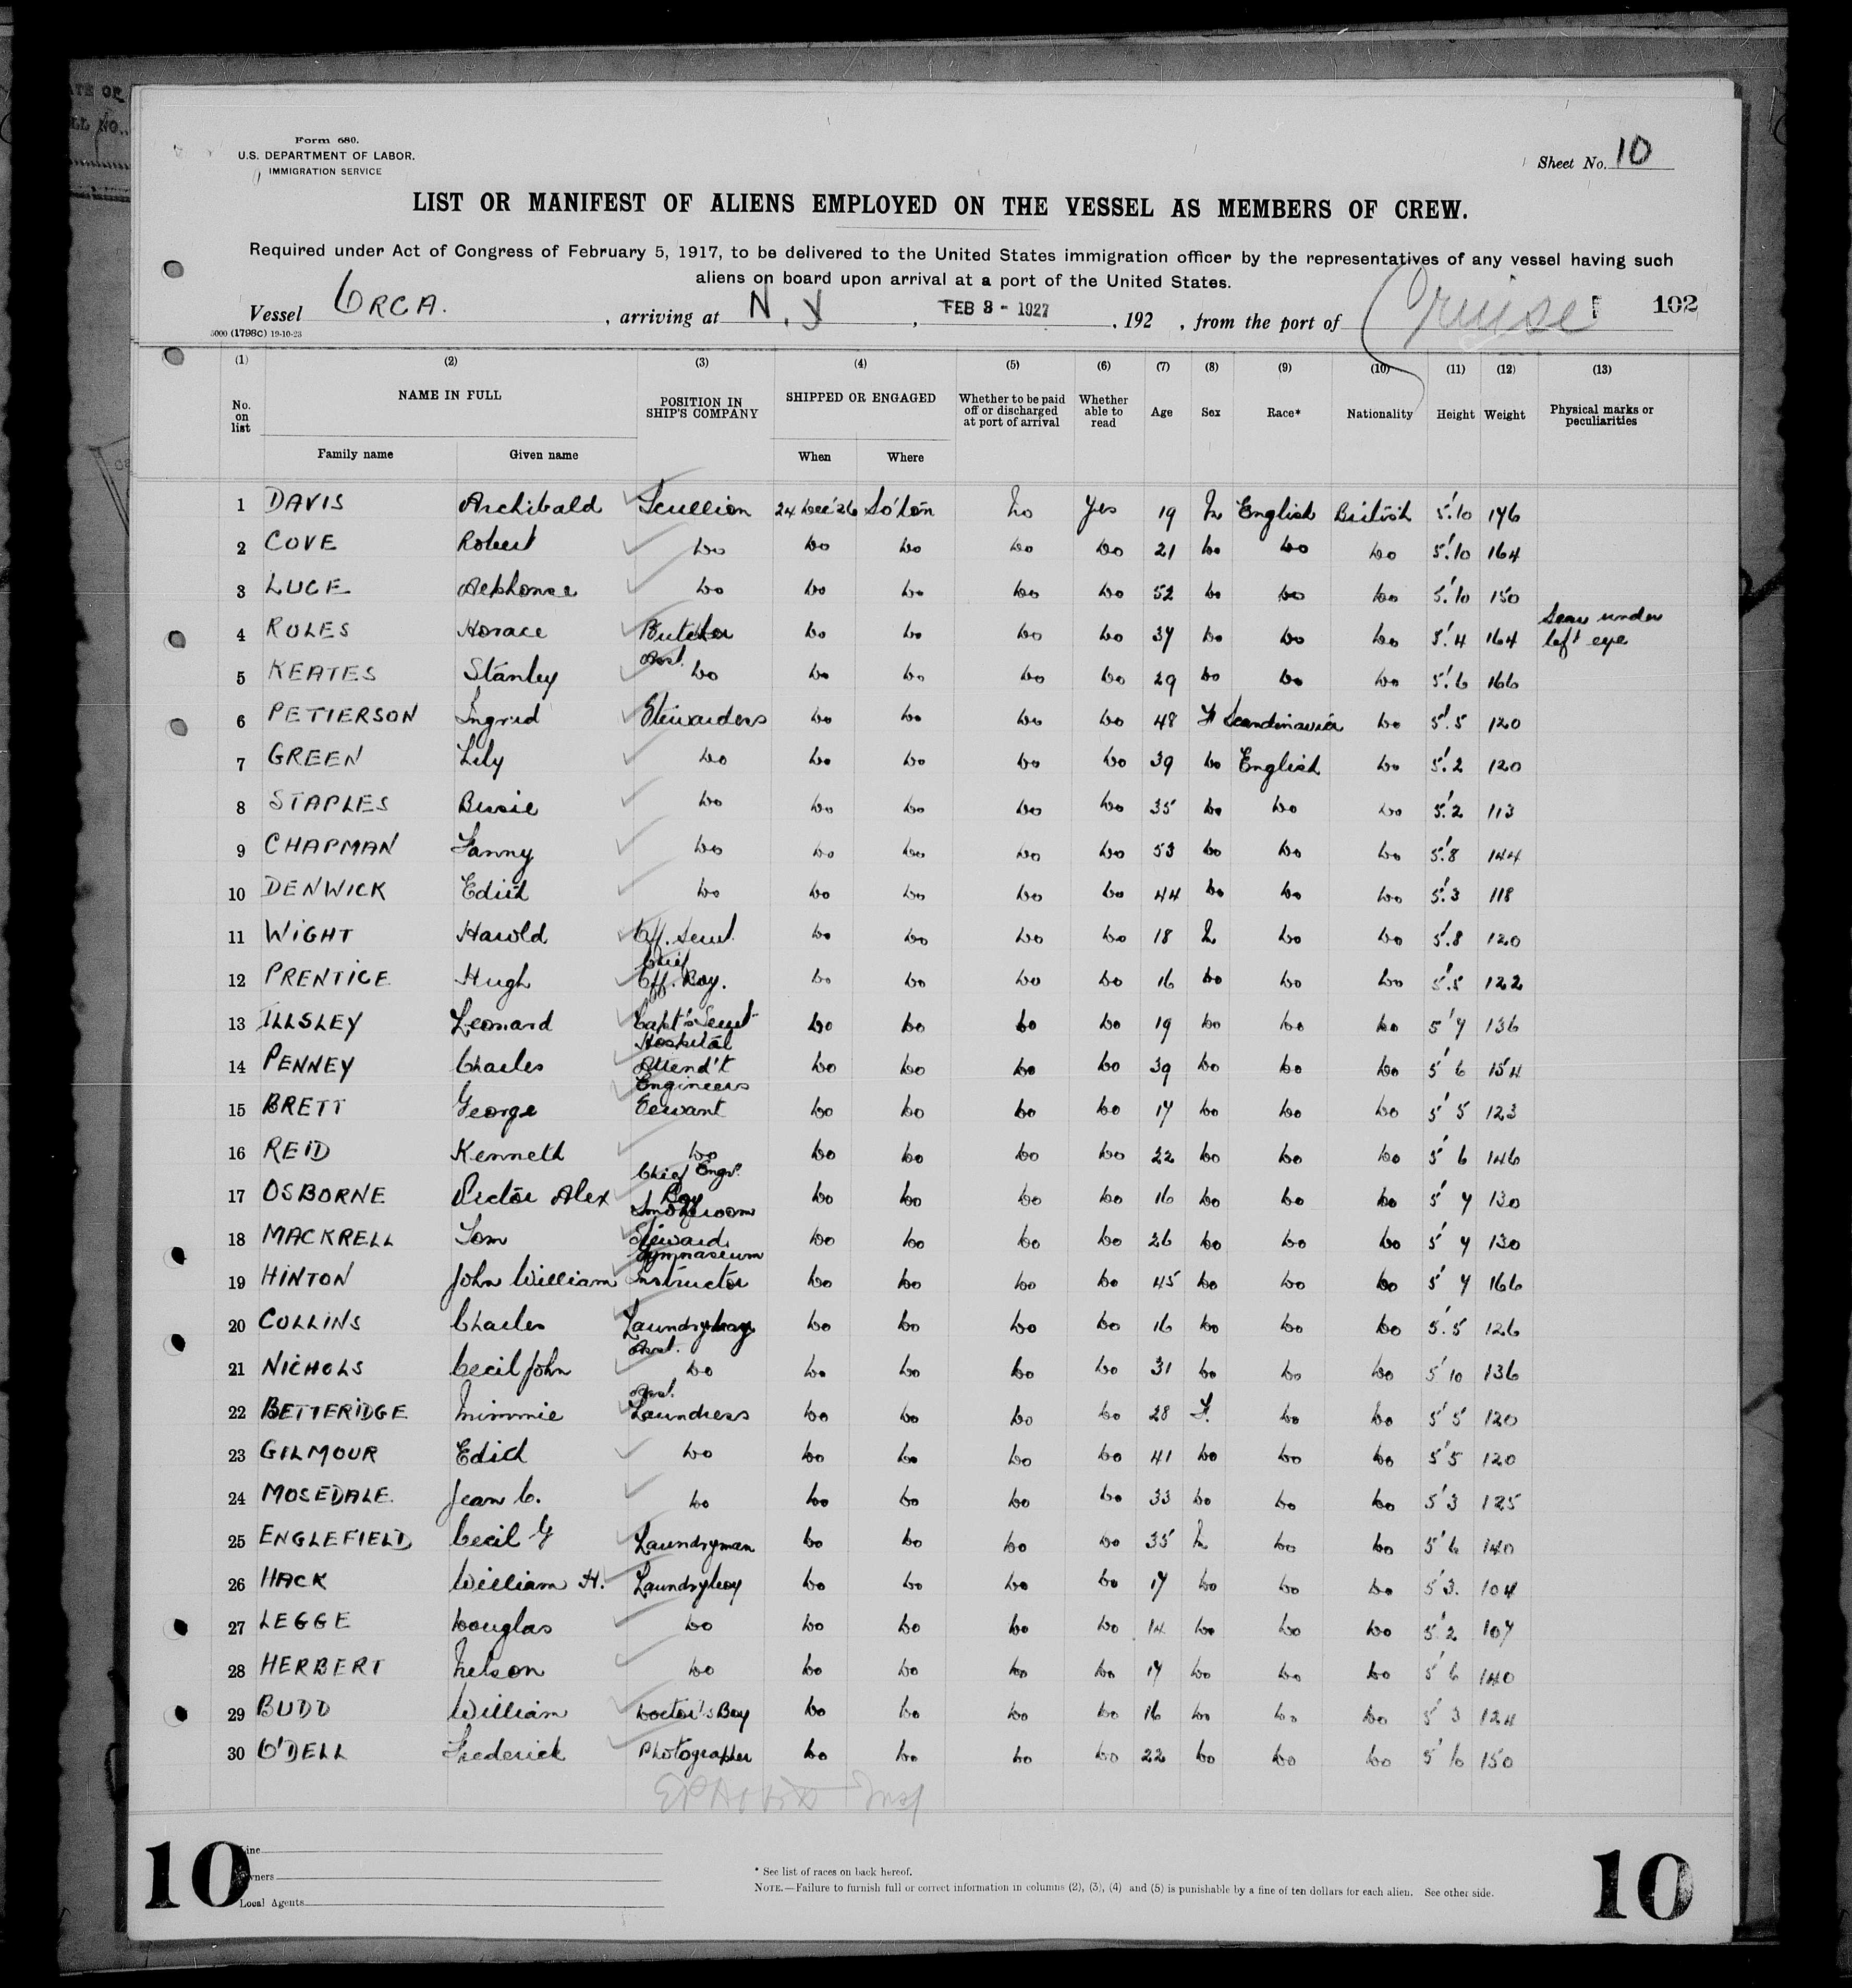 ATE OF
LL NO.
Form 680.
U.S. DEPARTMENT OF LABOR.
IMMIGRATION SERVICE
Sheet No. 10
LIST OR MANIFEST OF ALIENS EMPLOYED ON THE VESSEL AS MEMBERS OF CREW.
Required under Act of Congress of February 5, 1917, to be delivered to the United States immigration officer by the representatives of any vessel having such
aliens on board upon arrival at a port of the United States.
Vessel ORCA. , arriving at N. Y , FEB 3 - 1927 , 192 , from the port of Cruise 102
5000 (1798C) 19-10-23
(1) (2) (3) (4) (5) (6) (7) (8) (9) (10) (11) (12) (13)
No. on list NAME IN FULL Family name Given name POSITION IN SHIP'S COMPANY SHIPPED OR ENGAGED When Where Whether to be paid off or discharged at port of arrival Whether able to read Age Sex Race* Nationality Height Weight Physical marks or peculiarities
1 DAVIS Archibald Scullion 24 Dec '26 So'ton No Yes 19 M English British 5'.10 146
2 COVE Robert Do Do Do Do Do 21 Do Do Do 5'.10 164
3 LUCE Alphonse Do Do Do Do Do 52 Do Do Do 5'.10 150
4 RULES Horace Butcher Do Do Do Do 37 Do Do Do 5'.4 164 Scar under left eye
5 KEATES Stanley Asst. Do Do Do Do Do 29 Do Do Do 5'.6 166
6 PETTERSON Ingrid Stewardess Do Do Do Do 48 F Scandinavia Do 5'.5 120
7 GREEN Lily Do Do Do Do Do 39 Do English Do 5'.2 120
8 STAPLES Bessie Do Do Do Do Do 35 Do Do Do 5'.2 113
9 CHAPMAN Fanny Do Do Do Do Do 53 Do Do Do 5'.8 144
10 DENWICK Edith Do Do Do Do Do 44 Do Do Do 5'.3 118
11 WIGHT Harold Off. Servt. Do Do Do Do 18 M Do Do 5'.8 120
12 PRENTICE Hugh Chief Off. Boy. Do Do Do Do 16 Do Do Do 5'.5 122
13 ILLSLEY Leonard Capt's Servt Do Do Do Do 19 Do Do Do 5'7 136
14 PENNEY Charles Hospital Attend't Do Do Do Do 39 Do Do Do 5'6 154
15 BRETT George Engineers Servant Do Do Do Do 17 Do Do Do 5'5 123
16 REID Kenneth Do Do Do Do Do 22 Do Do Do 5'6 146
17 OSBORNE Victor Alex Chief Engr. Boy Do Do Do Do 16 Do Do Do 5'7 130
18 MACKRELL Tom Smokeroom Steward Do Do Do Do 26 Do Do Do 5'7 130
19 HINTON John William Gymnaseum Instructor Do Do Do Do 45 Do Do Do 5'7 166
20 COLLINS Charles Laundryboy Do Do Do Do 16 Do Do Do 5.'5 126
21 NICHOLS Cecil John Asst. Do Do Do Do Do 31 Do Do Do 5'10 136
22 BETTERIDGE Minnie Asst. Laundress Do Do Do Do 28 F. Do Do 5'5 120
23 GILMOUR Edith Do Do Do Do Do 41 Do Do Do 5'5 120
24 MOSEDALE Jean C. Do Do Do Do Do 33 Do Do Do 5'3 125
25 ENGLEFIELD Cecil G Laundryman Do Do Do Do 35 M Do Do 5'6 140
26 HACK William H. Laundryboy Do Do Do Do 17 Do Do Do 5'3. 104
27 LEGGE Douglas Do Do Do Do Do 14 Do Do Do 5'2 107
28 HERBERT Nelson Do Do Do Do Do 17 Do Do Do 5'6 140
29 BUDD William Doctor's Boy Do Do Do Do 16 Do Do Do 5'3 124
30 O'DELL Frederick Photographer Do Do Do Do 22 Do Do Do 5'10 150
10
Line
Owners
Local Agents
* See list of races on back hereof.
NOTE.—Failure to furnish full or correct information in columns (2), (3), (4) and (5) is punishable by a fine of ten dollars for each alien. See other side.
10